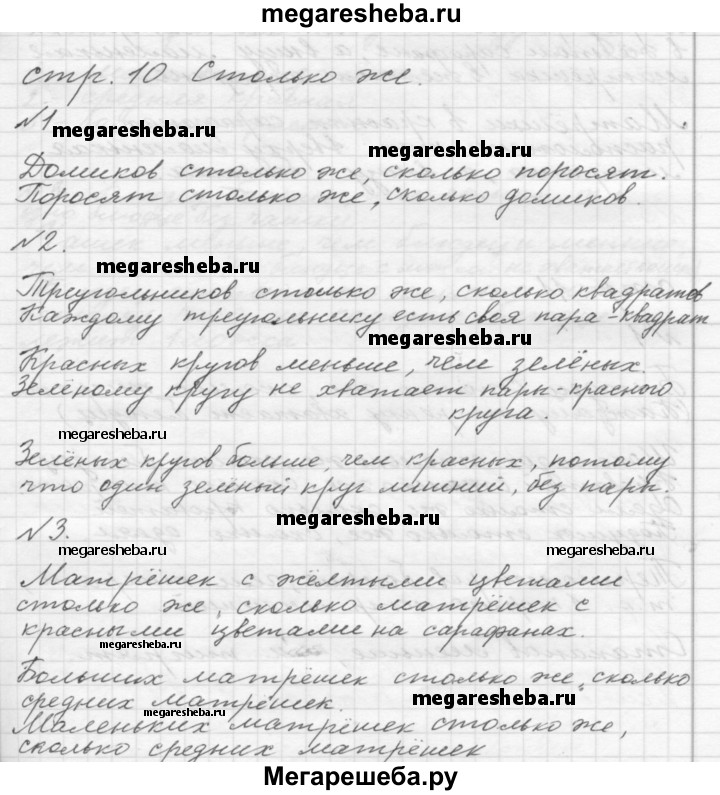 megaresheba.ru
стр. 10 Столько же.
№1
megaresheba.ru
megaresheba.ru
Домиков столько же, сколько поросят.
Поросят столько же, сколько домиков.
№2.
megaresheba.ru
Треугольников столько же, сколько квадратов
Каждому треугольнику есть своя пара - квадрат
megaresheba.ru
Красных кругов меньше, чем зелёных.
Зелёному кругу не хватает пары - красного
круга.
megaresheba.ru
Зелёных кругов больше, чем красных, потому
что один зелёный круг лишний, без пары.
megaresheba.ru
№3.
megaresheba.ru
megaresheba.ru
Матрёшек с жёлтыми цветами
столько же, сколько матрёшек с
красными цветами на сарафанах.
megaresheba.ru
Больших матрёшек столько же, сколько
средних матрёшек.
megaresheba.ru
megaresheba.ru
Маленьких матрёшек столько же,
сколько средних матрёшек
Мегарешеба.ру